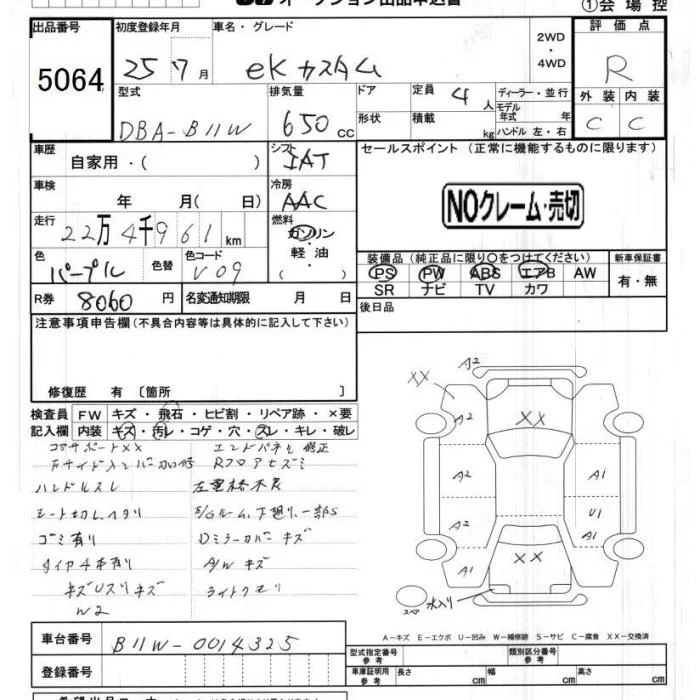 オークション出品申込書
①会場控
出品番号 初度登録年月 車名・グレード 2WD・4WD 評価点
5064 25 7月 eK カスタム R
型式 排気量 ドア 定員 4人 ディーラー・並行 外装 内装
DBA-B11W 650cc 形状 積載 kg モデル年式 年 ハンドル 左・右 C C
車歴 自家用・( ) シフト IAT セールスポイント (正常に機能するものに限ります)
車検 年 月( 日) 冷房 AAC
NOクレーム・売切
走行 22万4千961km 燃料 ガソリン・軽油・( )
色 パープル 色替 色コード V09
装備品(純正品に限り○をつけてください) 新車保証書
PS PW ABS エアB AW 有・無
SR ナビ TV カワ
R券 8060円 名変通知期限 月 日 後日品
注意事項申告欄(不具合内容等は具体的に記入して下さい)
修復歴 有 〔箇所 〕
検査員 FW キズ・飛石・ヒビ割・リペア跡・×要
記入欄 内装 キズ・汚レ・コゲ・穴・スレ・キレ・破レ
コアサポートXX エンドパネル修正
ハンドルスレ
シート切レヘタリ 下廻り一部S
ゴミ有り Dミラーカバーキズ
タイヤ4本有り A/Wキズ
キズUスリキズ ライトクモリ
W2
A2
XX
A2
XX
A2
A1
A2
U1
A1
XX
A1
スペア
水入り
A-キズ E-エクボ U-凹み W-補修跡 S-サビ C-腐食 XX-交換済
車台番号 B11W-0014325
登録番号
型式指定番号 参考 類別区分番号 参考
車庫証明用 参考 長さ cm 幅 cm 高さ cm